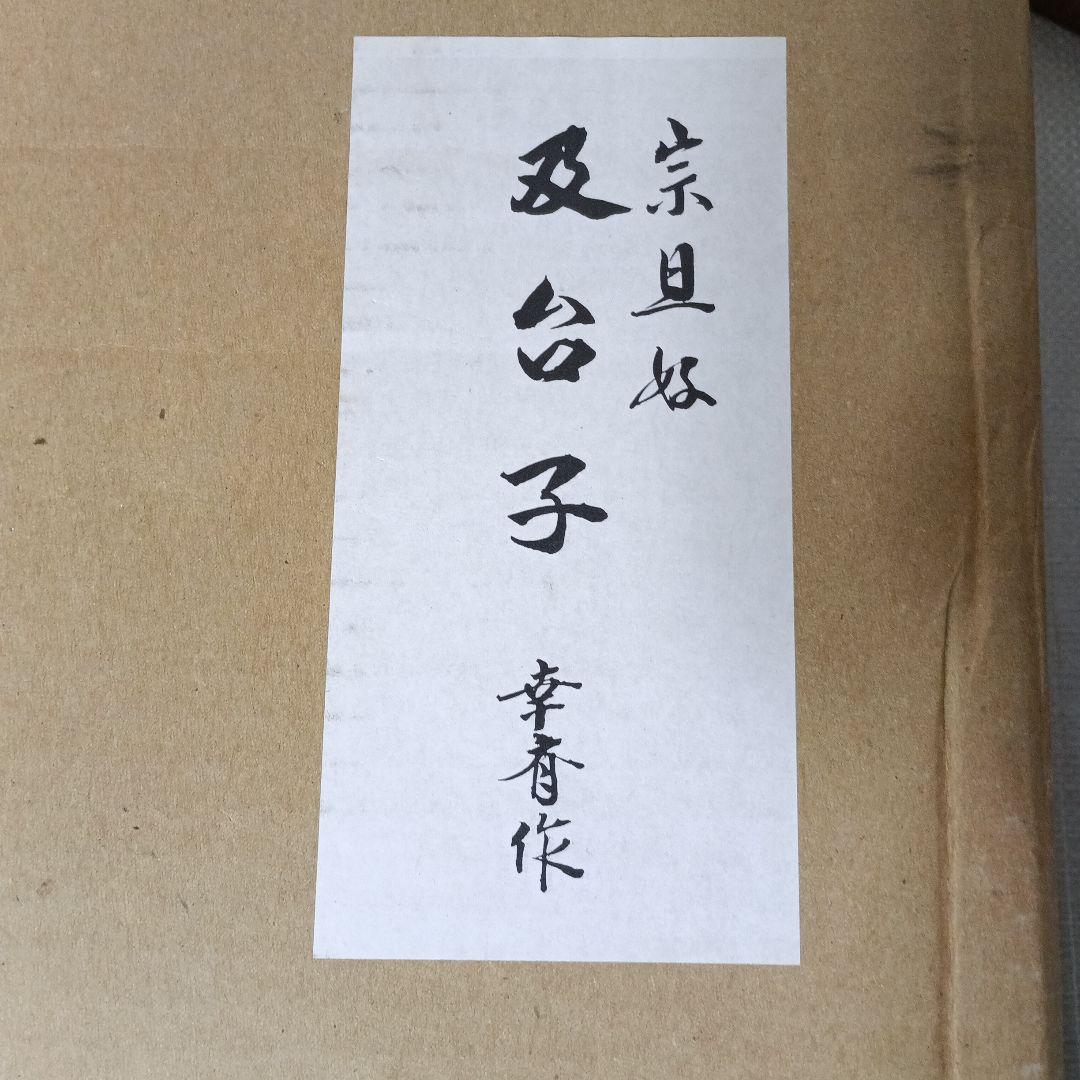 宗旦好
及台子
幸斉作